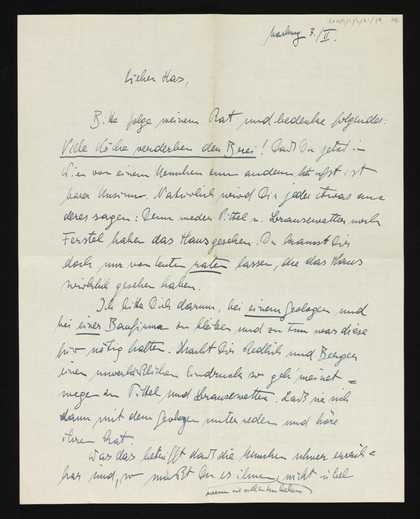 Marburg 3./II.
Lieber Has,
Bitte folge meinem Rat und bedenke folgendes:
Viele Köche verderben den Brei! Daß Du jetzt in
Wien von einem Menschen zum anderen läufst ist
purer Unsinn. Natürlich wird Dir jeder etwas an-
deres sagen: Denn weder Pittel u. Brausewetter noch
Ferstel haben das Haus gesehen. Du kannst Dir
doch nur von Leuten raten lassen, die das Haus
wirklich gesehen haben.
Ich bitte Dich darum, bei einem Geologen und
bei einer Baufirma zu bleiben und zu tun was diese
für nötig halten. Macht Dir Redlich und Berger
einen unverläßlichen Eindruck so geh' meinet-
wegen zu Pittel und Brausewetter. Laß sie sich
dann mit dem Geologen unterreden und höre
ihren Rat.
Was das betrifft daß die Menschen schwer erreich-
bar sind, so mußt Du es ihnen nicht übel